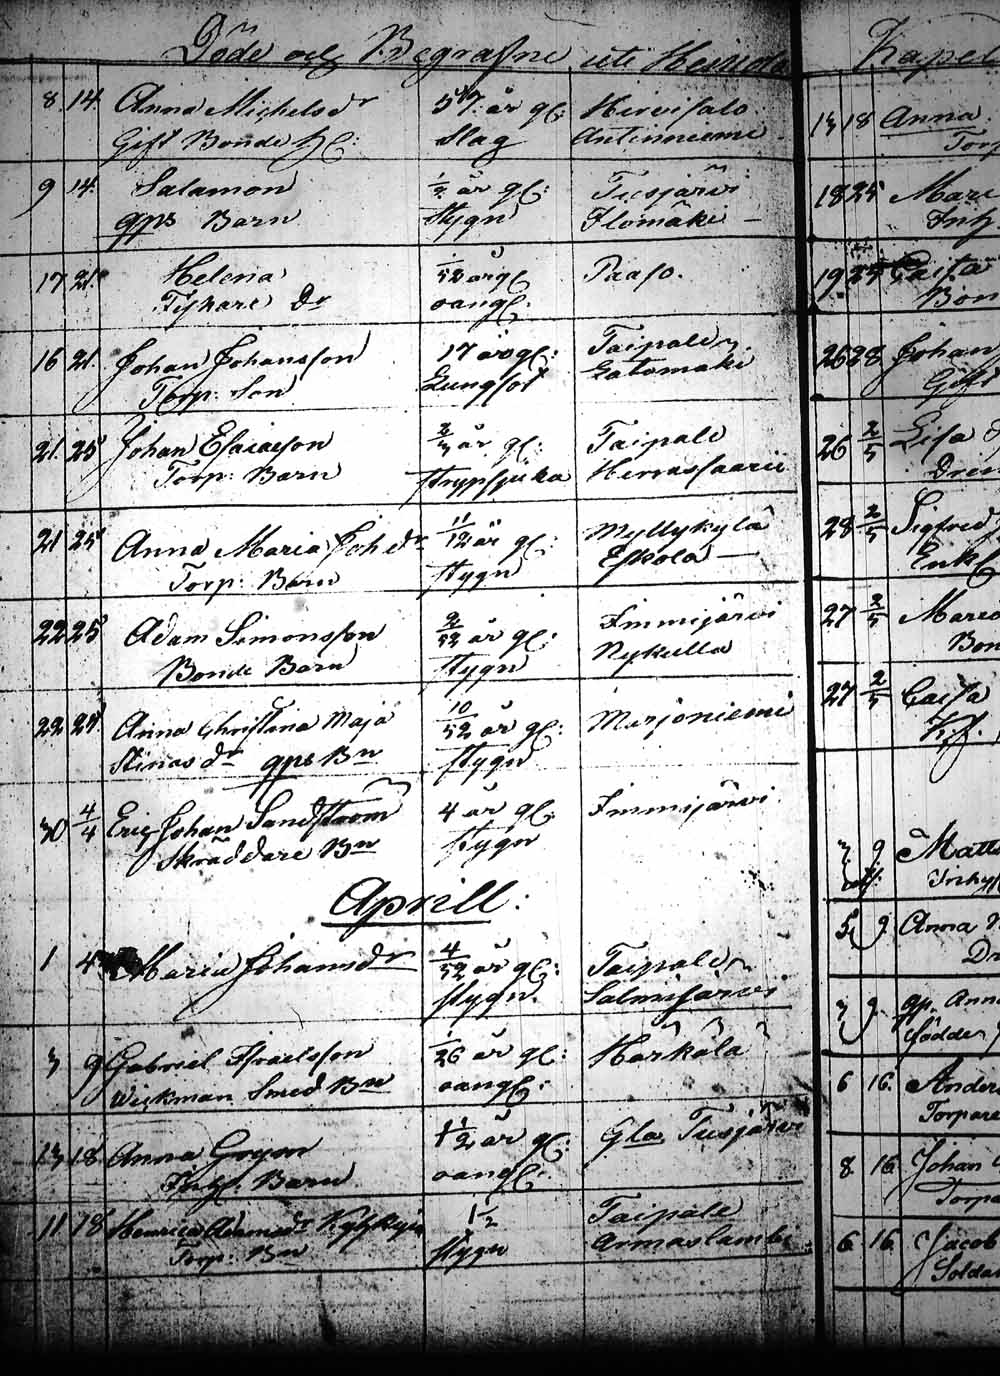 Döde och Begrafne uti Heinola
8 14. Anna Michelsdr 57 år gl: Hirvisalo
Gift Bonde H: Slag Anttinniemi
9 14. Salamon ½ år gl: Tusjärvi
qps Barn Stygn Ilomäki —
17 21. Helena 1/52 år gl Paaso.
Dr oangf:
16 21. Johan Johansson 17 år gl: Taipale
Torp: Son Lungsot Latomäki
21. 25 Johan Esaiæson 2/3 år gl: Taipale
Torp: Barn Strypsjuka Herrassaarii
21 25 Anna Maria Joh dr 11/12 år gl: Myllykylä
Torp: Barn Stygn Eskola —
22 25 Adam Simonsson 2/52 år gl: Immijärvi
Bonde Barn Stygn Nykulla
22 25. Anna Christina Maja 10/52 år gl: Marjoniemi
Stinas dr qps Bn Stygn
30 4/4 Eric Johan Sandström 4 år gl: Immijärvi
Skräddare Bn Stygn
Aprill:
1 4 Maria Johansdr 4/52 år gl: Taipale
Stygn. Salmijärvi
3 9 Gabriel Israelsson 1/26 år gl: Härkälä
Wickman Smed Bn oangf:
13 18. Anna 1½ år gl: Gla Tusjärvi
Inh: Barn oangf:
11 18 Henrica Adamsdr 1½ Taipale
Torp: Bn Stygn Armaslambi
Kapel
13 18 Anna
Torp
18 25 Mari
Inh
19 25 Caisa
Bon
26 28 Johan
Gift
26 2/5 Lisa
Dren
28 2/5 Sigfred
Enkl
27 2/5 Maria
Bon
27 2/5 Caisa
3 9 Matts
Inhys
5 9 Anna
Dr
3 9 qp. Anna
födder
6 16. Ander
Torpare
8 16. Johan
Torpa
6 16. Jacob
Solda